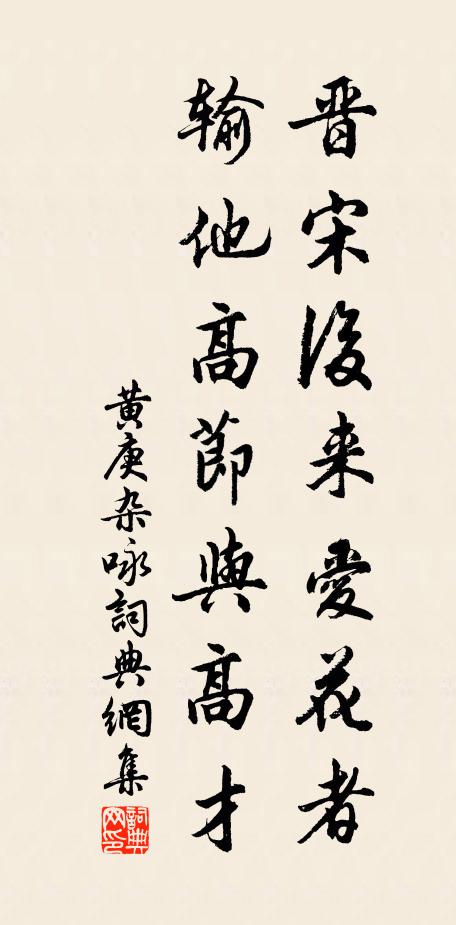 晋宋後来愛花者
输他高節與高才
黄庚杂咏詞典網集
詞典网印